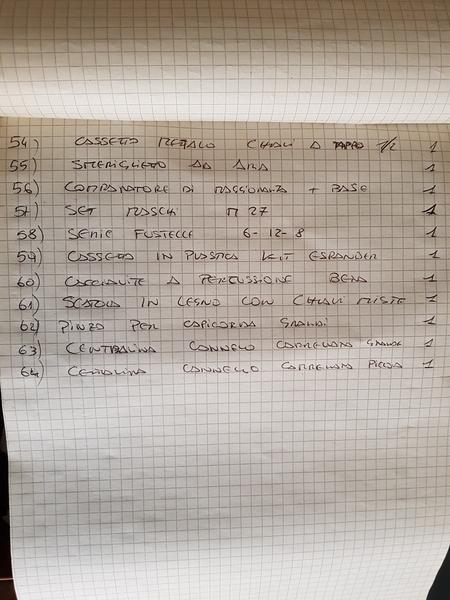 54) CASSETTA METALLO CHIAVI A TAPPO 1/2 1
55) SMERIGLIETTO AD ARIA 1
56) COMPARATORE DI MASSIONANZA + BASE 1
57) SET MASCHI M 27 1
58) SERIE FUSTELLE 6-12-8 1
59) CASSETTA IN PLASTICA KIT ESPANDER 1
60) CACCIAVITE A PERCUSSIONE BETA 1
61) SCATOLA IN LEGNO CON CHIAVI MISTE 1
62) PINZA PER CAPICORDA GRANDI 1
63) CENTRALINA CANNELLO CARRELLATA GRANDE 1
64) CENTRALINA CANNELLO CARRELLATA PICCOLA 1